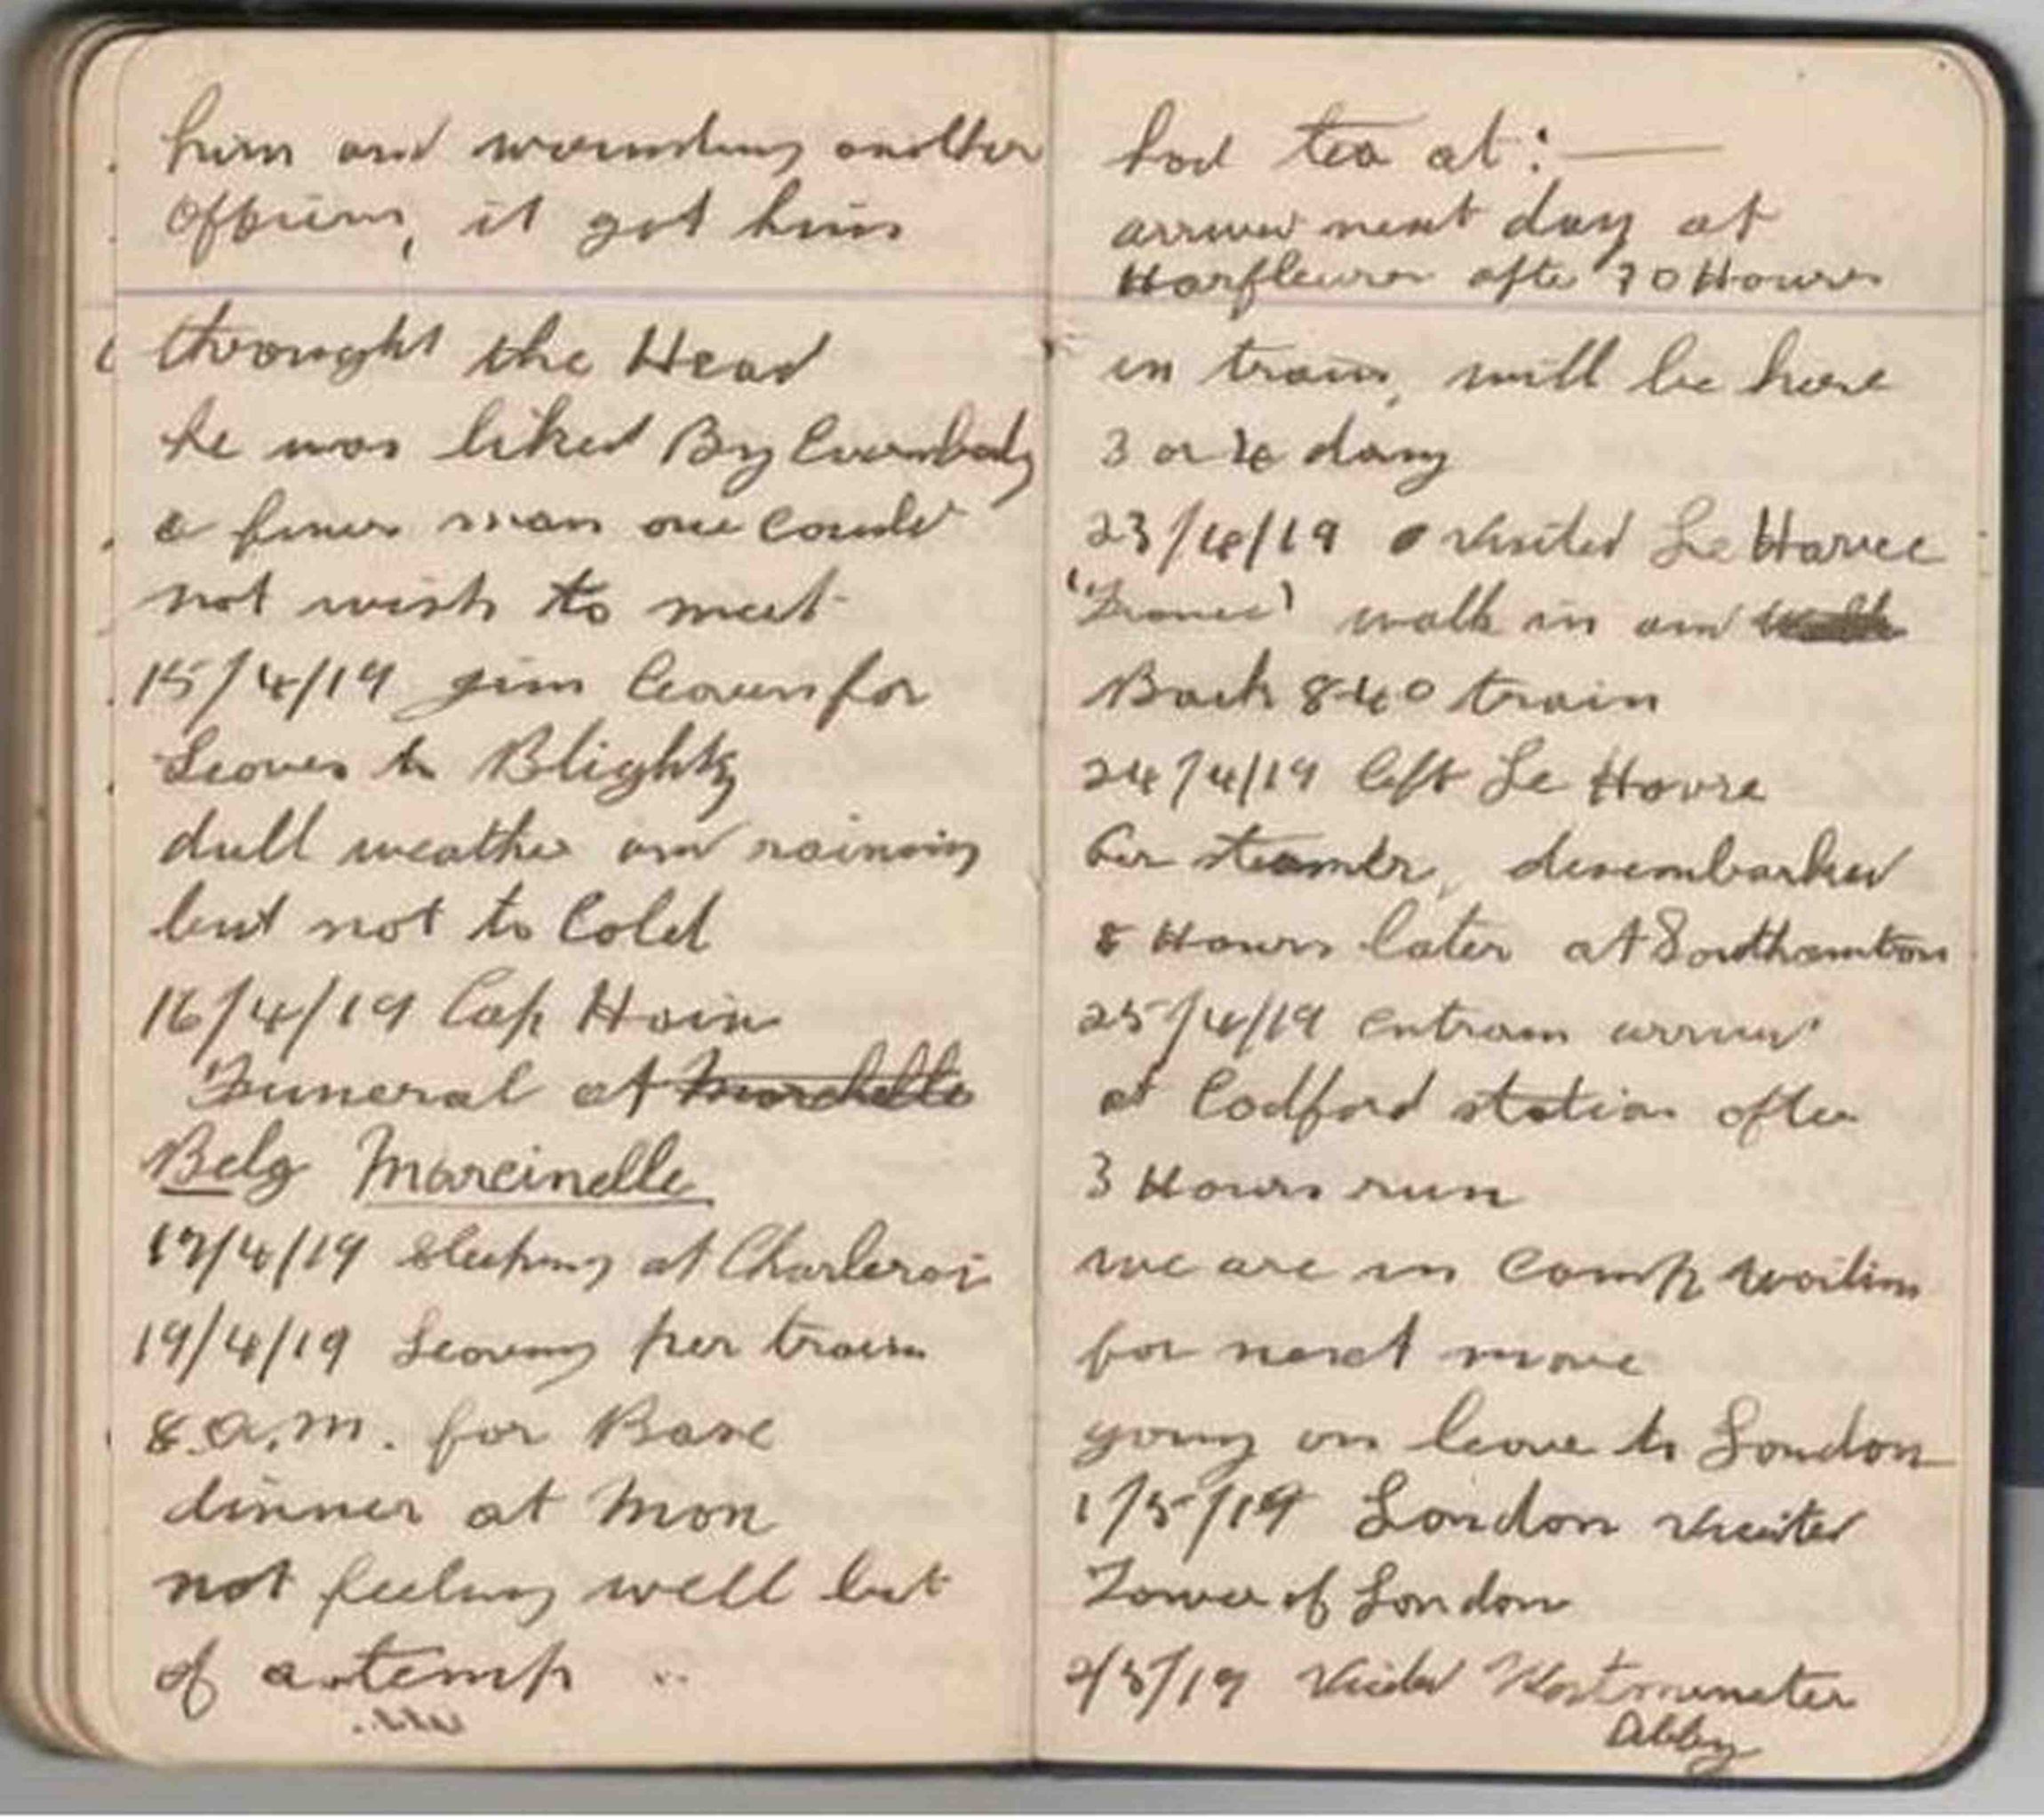 him and wounding another
Officers, it got him
throught the Head
he was liked By Everybody
a finer man one could
not wish to meet
15/4/19 Jim leaves for
Leaves to Blighty
dull weather and raining
but not to Cold
16/4/19 Cap Hain
Funeral at Marchelle
Belg Marcinelle
17/4/19 Sleeping at Charleroi
19/4/19 Leaving per train
8.a.m. for Base
dinner at Mon
not feeling well bit
of a temp
had tea at :—
arrived next day at
Harfleur after 70 Hours
in train, will be here
3 or 4 days
23/4/19 visited Le Havre
'France' walk in and walk
Back 8-40 train
24/4/19 left Le Havre
Per steamer, disembarked
8 Hours later at Southamton
25/4/19 entrain arrived
at Codford station after
3 Hours run
we are in Camp waiting
for next move
going on leave to London
1/5/19 London visited
Tower of London
2/5/19 Visited Westminster
Abbey